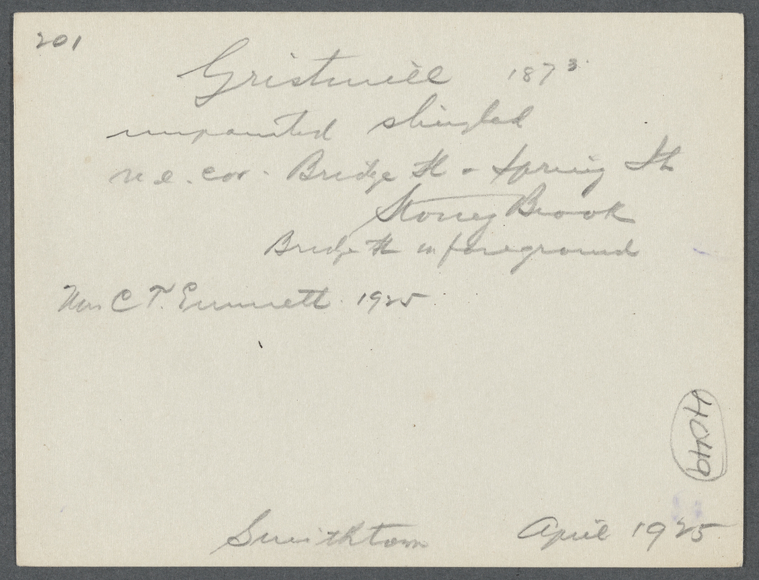 201
Gristmill 1873
unpainted shingled
n.e. cor. Bridge St & Spring St
Stoney Brook
Bridge St in foreground
Mrs C T. Emmett. 1925
4049
Smithtown April 1925